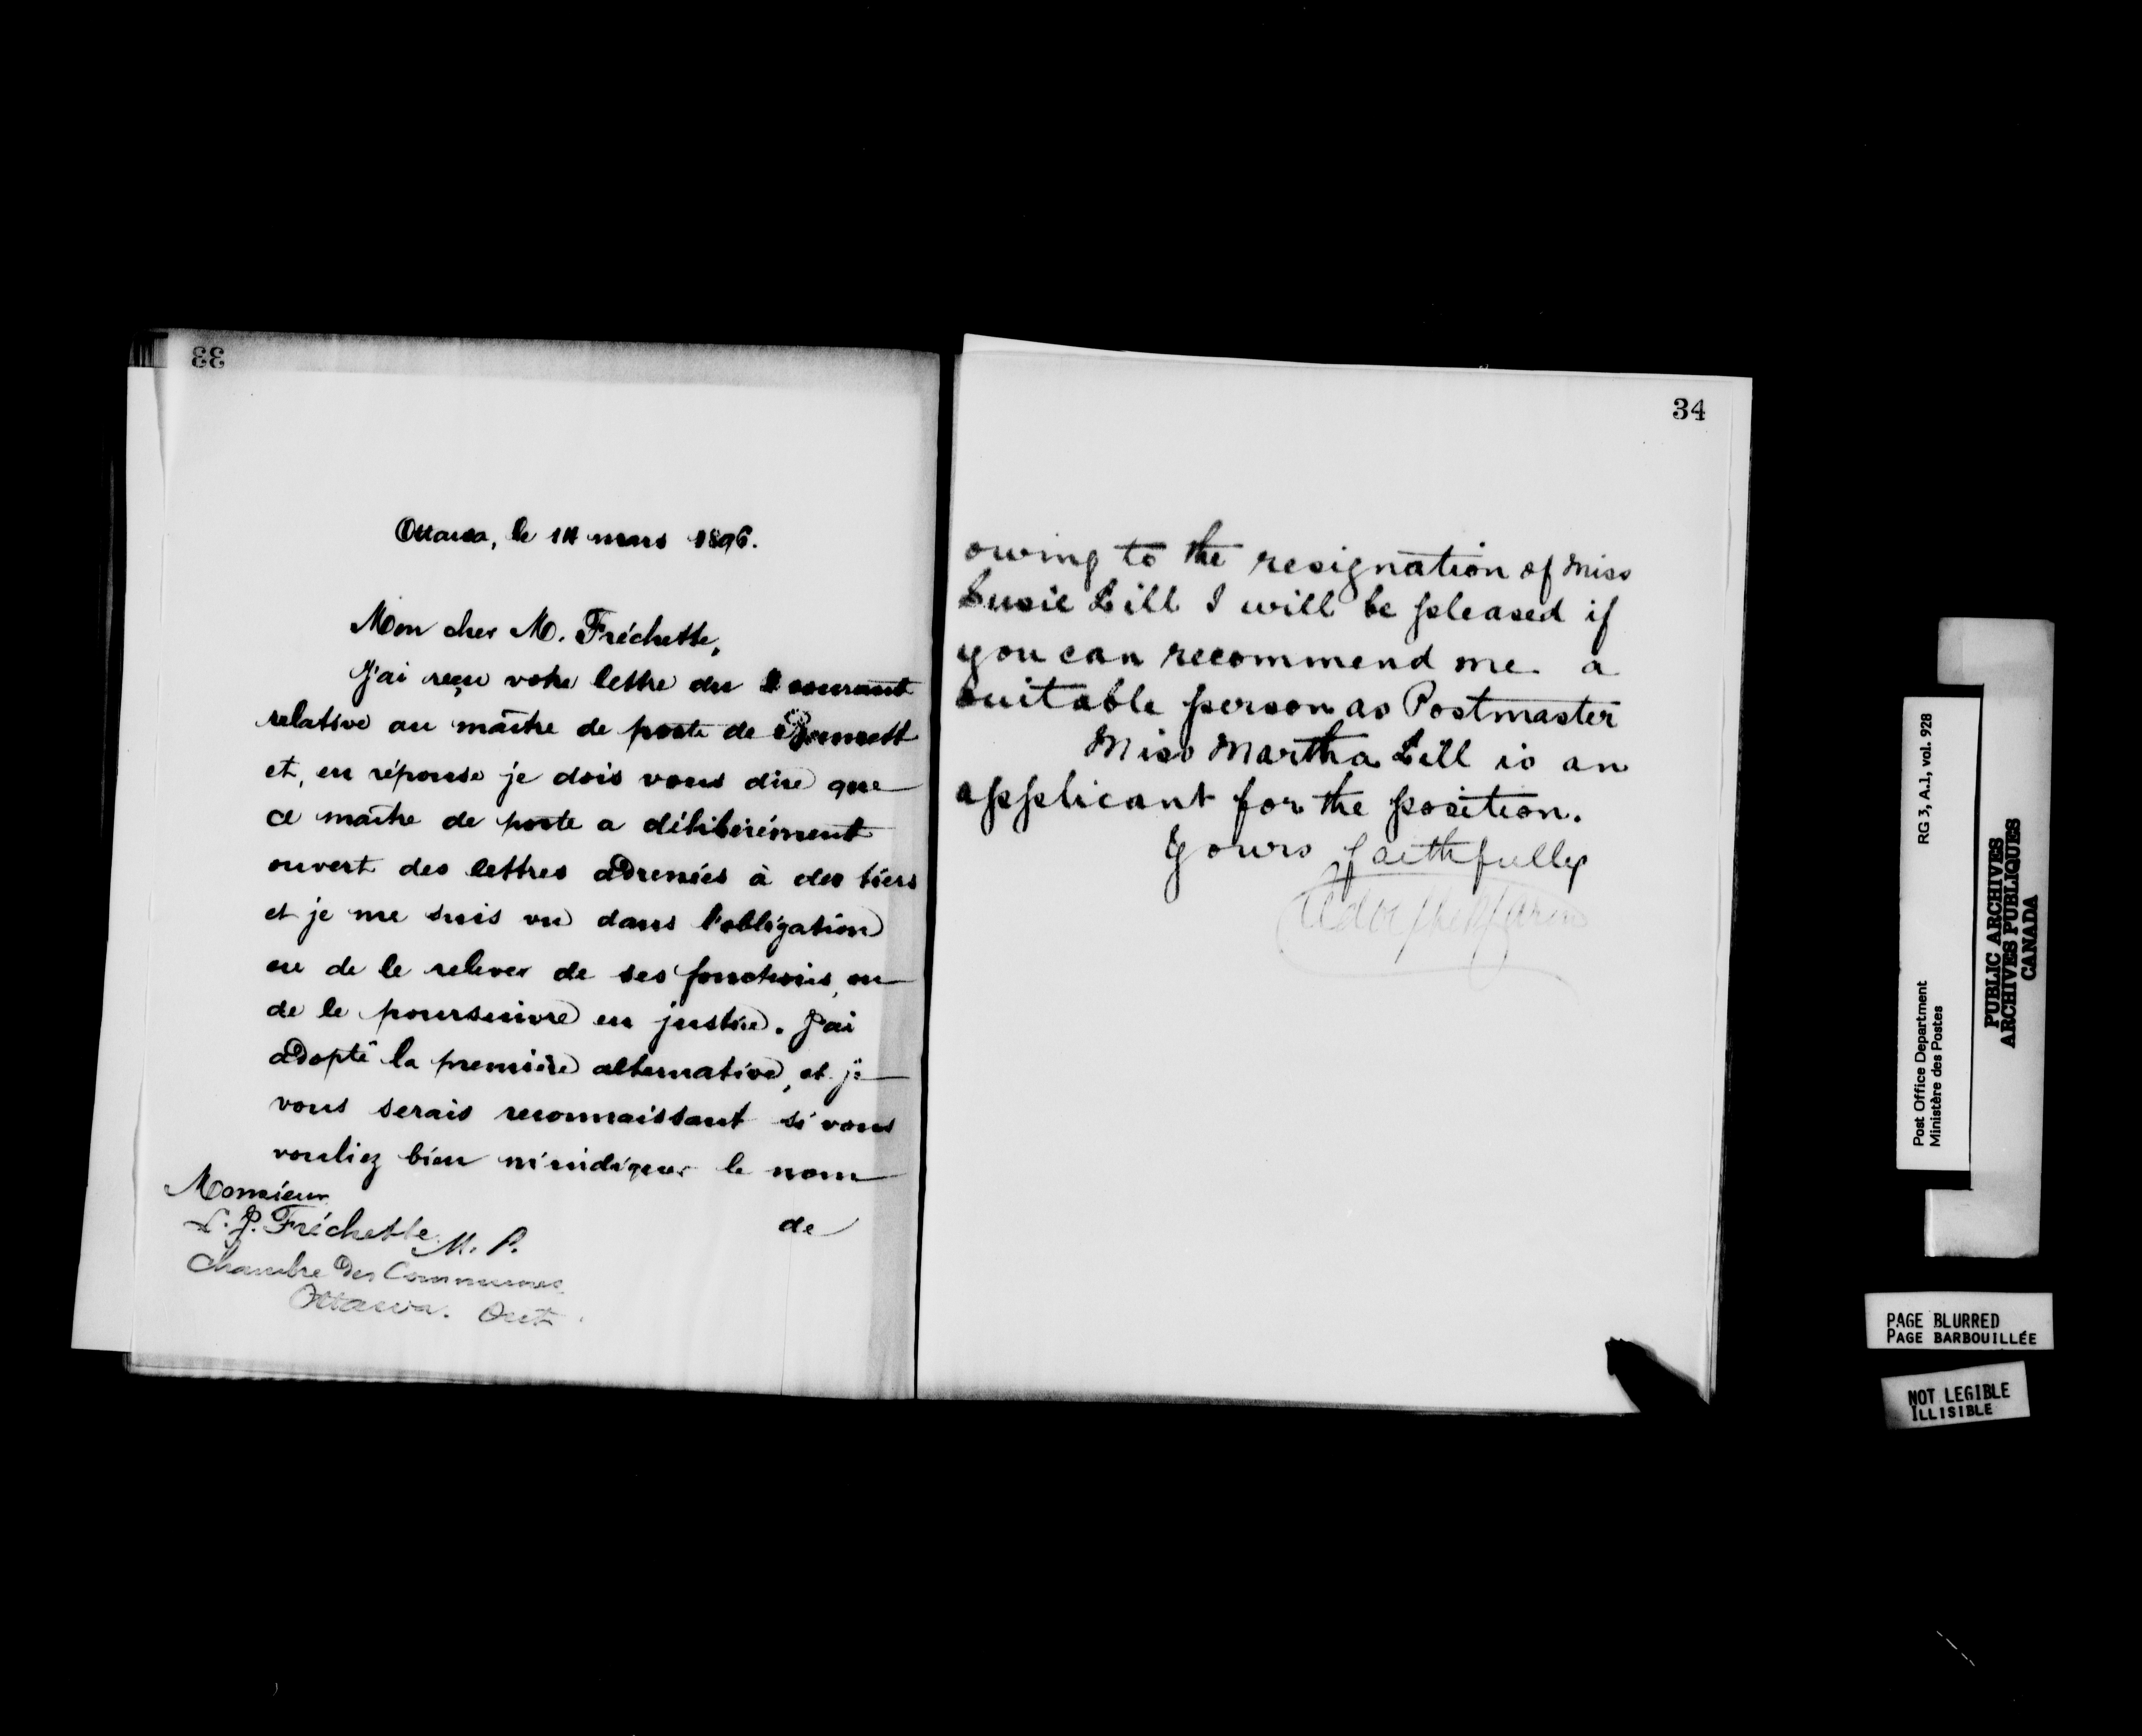 33
Ottawa, le 14 mars 1896.
Mon cher M. Fréchette,
J'ai reçu votre lettre du courant
relative au maître de poste de
et, en réponse je dois vous dire que
ce maître de poste a délibérément
ouvert des lettres adressées à des tiers
et je me suis vu dans l'obligation
ou de le relever de ses fonctions, ou
de le poursuivre en justice. J'ai
adopté la première alternative, et je
vous serais reconnaissant si vous
vouliez bien m'indiquer le nom
de
Monsieur
L. J. Fréchette M. P.
Chambre des Communes
Ottawa. Ont.
34
owing to the resignation of Miss
Susie Lill I will be pleased if
you can recommend me a
suitable person as Postmaster
Miss Martha Lill is an
applicant for the position.
Yours faithfully
RG 3, A.1, vol. 928
Post Office Department
Ministère des Postes
PUBLIC ARCHIVES
ARCHIVES PUBLIQUES
CANADA
PAGE BLURRED
PAGE BARBOUILLÉE
NOT LEGIBLE
ILLISIBLE